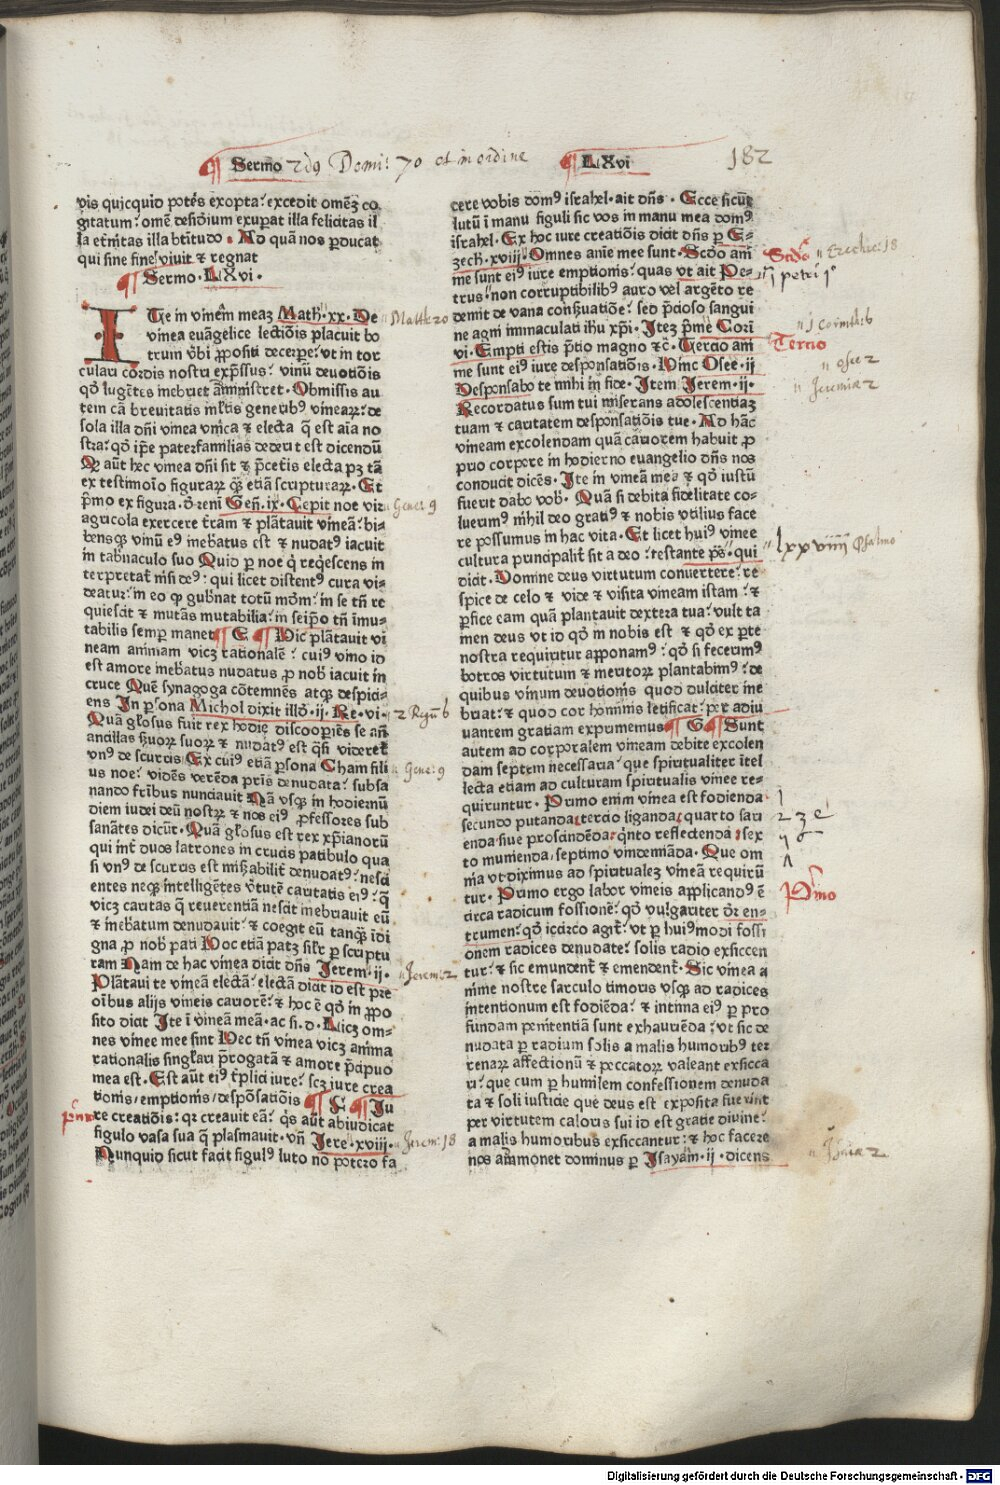 Sermo 2dꝯ Domi: 70 et in ordine LXvi 182
vis quicquid potes exopta: excedit omēȝ co
gitatum: omē desideriū exuperat illa felicitas il
la etnitas illa btitudo. Ad quā nos perducat
qui sine fine viuit ⁊ regnat
¶ Sermo. LXvi.
Ite in vineā meaȝ Math. xx. De
vinea euāgelice lectiōis placuit bo
trum vbi propositi decerpe: vt in tor
culari cordis nostri exp̄ssus: vinū deuotiōis
qd lugētes inebriet amministret. Obmissis au
tem cā breuitatis mltis generibꝰ vineaꝝ: de
sola illa dn̄i vinea vnica ⁊ electa q̄ est aīa no
stra: qd ip̄e paterfamilias dederit est dicendū
Qꝛ aūt hec vinea dn̄i sit ⁊ p̄cetis electa pȝ tā
ex testimoīo figuraꝝ q̄ꝫ etiā scripturaꝝ. Et
p̄mo ex figura. dr̄ eni Geñ. ix. Cepit noe vir
agricola exercere trām ⁊ plātauit vineā: bi
bensqꝫ vinū eꝰ inebriatus est ⁊ nudatꝰ iacuit
in tabnaculo suo Quid per noe q̄ reqescens in
terpretat̄ nisi deꝰ: qui licet distentꝰ cura vi
deatur: in eo qꝫ gubnat totū mōm: in se tn̄ re
quiescit ⁊ mutās mutabilia: in seip̄o tn̄ īmu
tabilis semp̄ manet ¶ E ¶ Hic plātauit vi
neam animam vicȝ rationalē: cuiꝰ vino id
est amore inebriatus nudatus pro nob iacuit in
cruce Quē synagoga cōtemnēs atqꝫ despici
ens In p̄sona Michol dixit illō. ij. Re. vi.
Quā gl̄osus fuit rex hodie discoopiēs se añ
ancillas ẜuoꝝ suoꝝ ⁊ nudatꝰ est q̄si videret̄
vnꝰ de scurris Ex cuiꝰ etiā p̄sona Cham fili
us noe: vidēs verēda pr̄is denudata: subsa
nando fr̄ibus nunciauit Nā vsqꝫ in hodiernū
diem iudei deū nostrꝝ ⁊ nos eiꝰ professores sub
sanātes dicūt. Quā gl̄osus est rex xp̄ianorū
qui int̄ duos latrones in crucis patibulo qua
si vnꝰ de scurris est mīẜabilit̄ denudatꝰ: nesci
entes neqꝫ intelligētes v̄tutē caritatis eiꝰ: q̄
vicȝ caritas q̄ reuerentiā nescit inebriauit eū
⁊ inebriatum denudauit: ⁊ coegit eū tanqꝫ idi
gna pro nob pati Hoc etiā patȝ silr̄ per scriptu
ram Nam de hac vinea dicit dn̄s Jerem. ij.
Plātaui te vineā electā: electā dicit id est pre
oībus alijs vineis cariorē: ⁊ hoc ē qd in propo
sito dicit Ite ī vineā meā. ac si. d. Licȝ om
nes vinee mee sint Hec tn̄ vinea vicȝ anima
rationalis singlari prerogatā ⁊ amore p̄cipuo
mea est. Est aūt eiꝰ triplici iure: scȝ iure crea
tionis/emptionis/despōsatiōis ¶ F ¶ Iu
re creatiōis: qꝛ creauit eā: q̄s aūt abiudicat
figulo vasa sua q̄ plasmauit. vñ Jere. xviij.
Nunquid sicut facit figulꝰ luto nō potero fa
cere vobis domꝰ israhel. ait dn̄s. Ecce sicut
lutū ī manu figuli sic vos in manu mea domꝰ
israhel. Ex hoc iure creatiōis dicit dn̄s p E-
zech. xviij. Omnes anīe mee sunt. Scdo ani
me sunt eiꝰ iure emptionis: quas vt ait Pe-
trus: non corruptibilibꝰ auro vel argēto re
demit de vana conẜuatiōe: sed p̄cioso sangui
ne agni immaculati ihu xp̄i. Iteȝ p̄me Cori
vi. Empti estis p̄tio magno ⁊c. Tercio ani
me sunt eiꝰ iure desponsatiōis. Hinc Osee. ij
Desponsabo te mihi in fide. Item Jerem. ij.
Recordatus sum tui miserans adolescentiaȝ
tuam ⁊ caritatem desponsatiōis tue. Ad hāc
vineam excolendam quā cariorem habuit pro
prio corpore in hodierno euangelio dn̄s nos
conducit dicēs. Ite in vineā meā ⁊ qd iustū
fuerit dabo vob. Quā si debita fidelitate co-
luerimꝰ nihil deo gratiꝰ ⁊ nobis vtilius face
re possumus in hac vita. Et licet huiꝰ vinee
cultura principalit̄ sit a deo: testante p̄s. qui
dicit. Domine deus virtutum conuertere: re
spice de celo ⁊ vide ⁊ visita vineam istam: ⁊
p̄fice eam quā plantauit dextera tua: vult ta
men deus vt id qd in nobis est ⁊ qd ex p̄te
nostra requiritur apponamꝰ: qd si fecerimꝰ
botros virtutum ⁊ meritoꝝ plantabimꝰ: de
quibus vinum deuotionis quod dulciter ine
briat: ⁊ quod cor hominis letificat: per adiu
uantem gratiam exprimemus ¶ G ¶ Sunt
autem ad corporalem vineam debite excolen
dam septem necessaria: que spiritualiter ītel
lecta etiam ad culturam spiritualis vinee re-
quiruntur. Primo enim vinea est fodienda
secundo putanda/tercio liganda/quarto sari
enda siue proscindēda/qnto reflectenda/sex
to munienda/septimo vindemiāda. Que om
nia vt diximus ad spiritualeȝ vineā requirū
tur. Primo ergo labor vineis applicandꝰ ē
circa radicum fossionē: qd vulgariter dr̄ en-
trumen: qd icirco agit̄: vt per huiꝰmodi fossi
onem radices denudate: solis radio exsiccen
tur: ⁊ sic emundent̄ ⁊ emendent̄. Sic vinea a
nime nostre sarculo timoris vsqꝫ ad radices
intentionum est fodiēda: ⁊ intima eiꝰ per pro
fundam penitentiā sunt exhauriēda: vt sic de
nudata p̄ radium solis a malis humoribꝰ ter
renaꝝ affectionū ⁊ peccatoꝝ valeant exsicca
ri: que cum per humilem confessionem denuda
ta ⁊ soli iusticie que deus est exposita fuerint
per virtutem caloris sui id est gratie diuine:
a malis humoribus exsiccantur: ⁊ hoc facere
nos ammonet dominus p Isayam. ij. dicens
Matth: 20
Gene: 9
2 Regū 6
Gene: 9
Jerem: 2
Jerem: 18
Scdo Ezechie: 18
j petri j
j Corinth: 6
Tercio
Osee 2
Jeremiæ 2
lxxviiij Psalmo
1
2 3
Pmo
Isaiæ 2
Digitalisierung gefördert durch die Deutsche Forschungsgemeinschaft - DFG